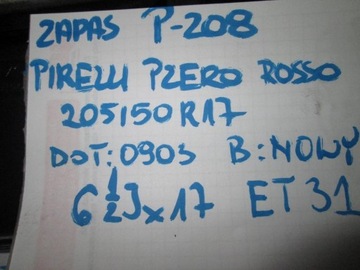 ZAPAS P-208
PIRELLI PZERO ROSSO
205/50 R17
DOT:0903 B:NOWY
6 1/2 J x 17 ET 31